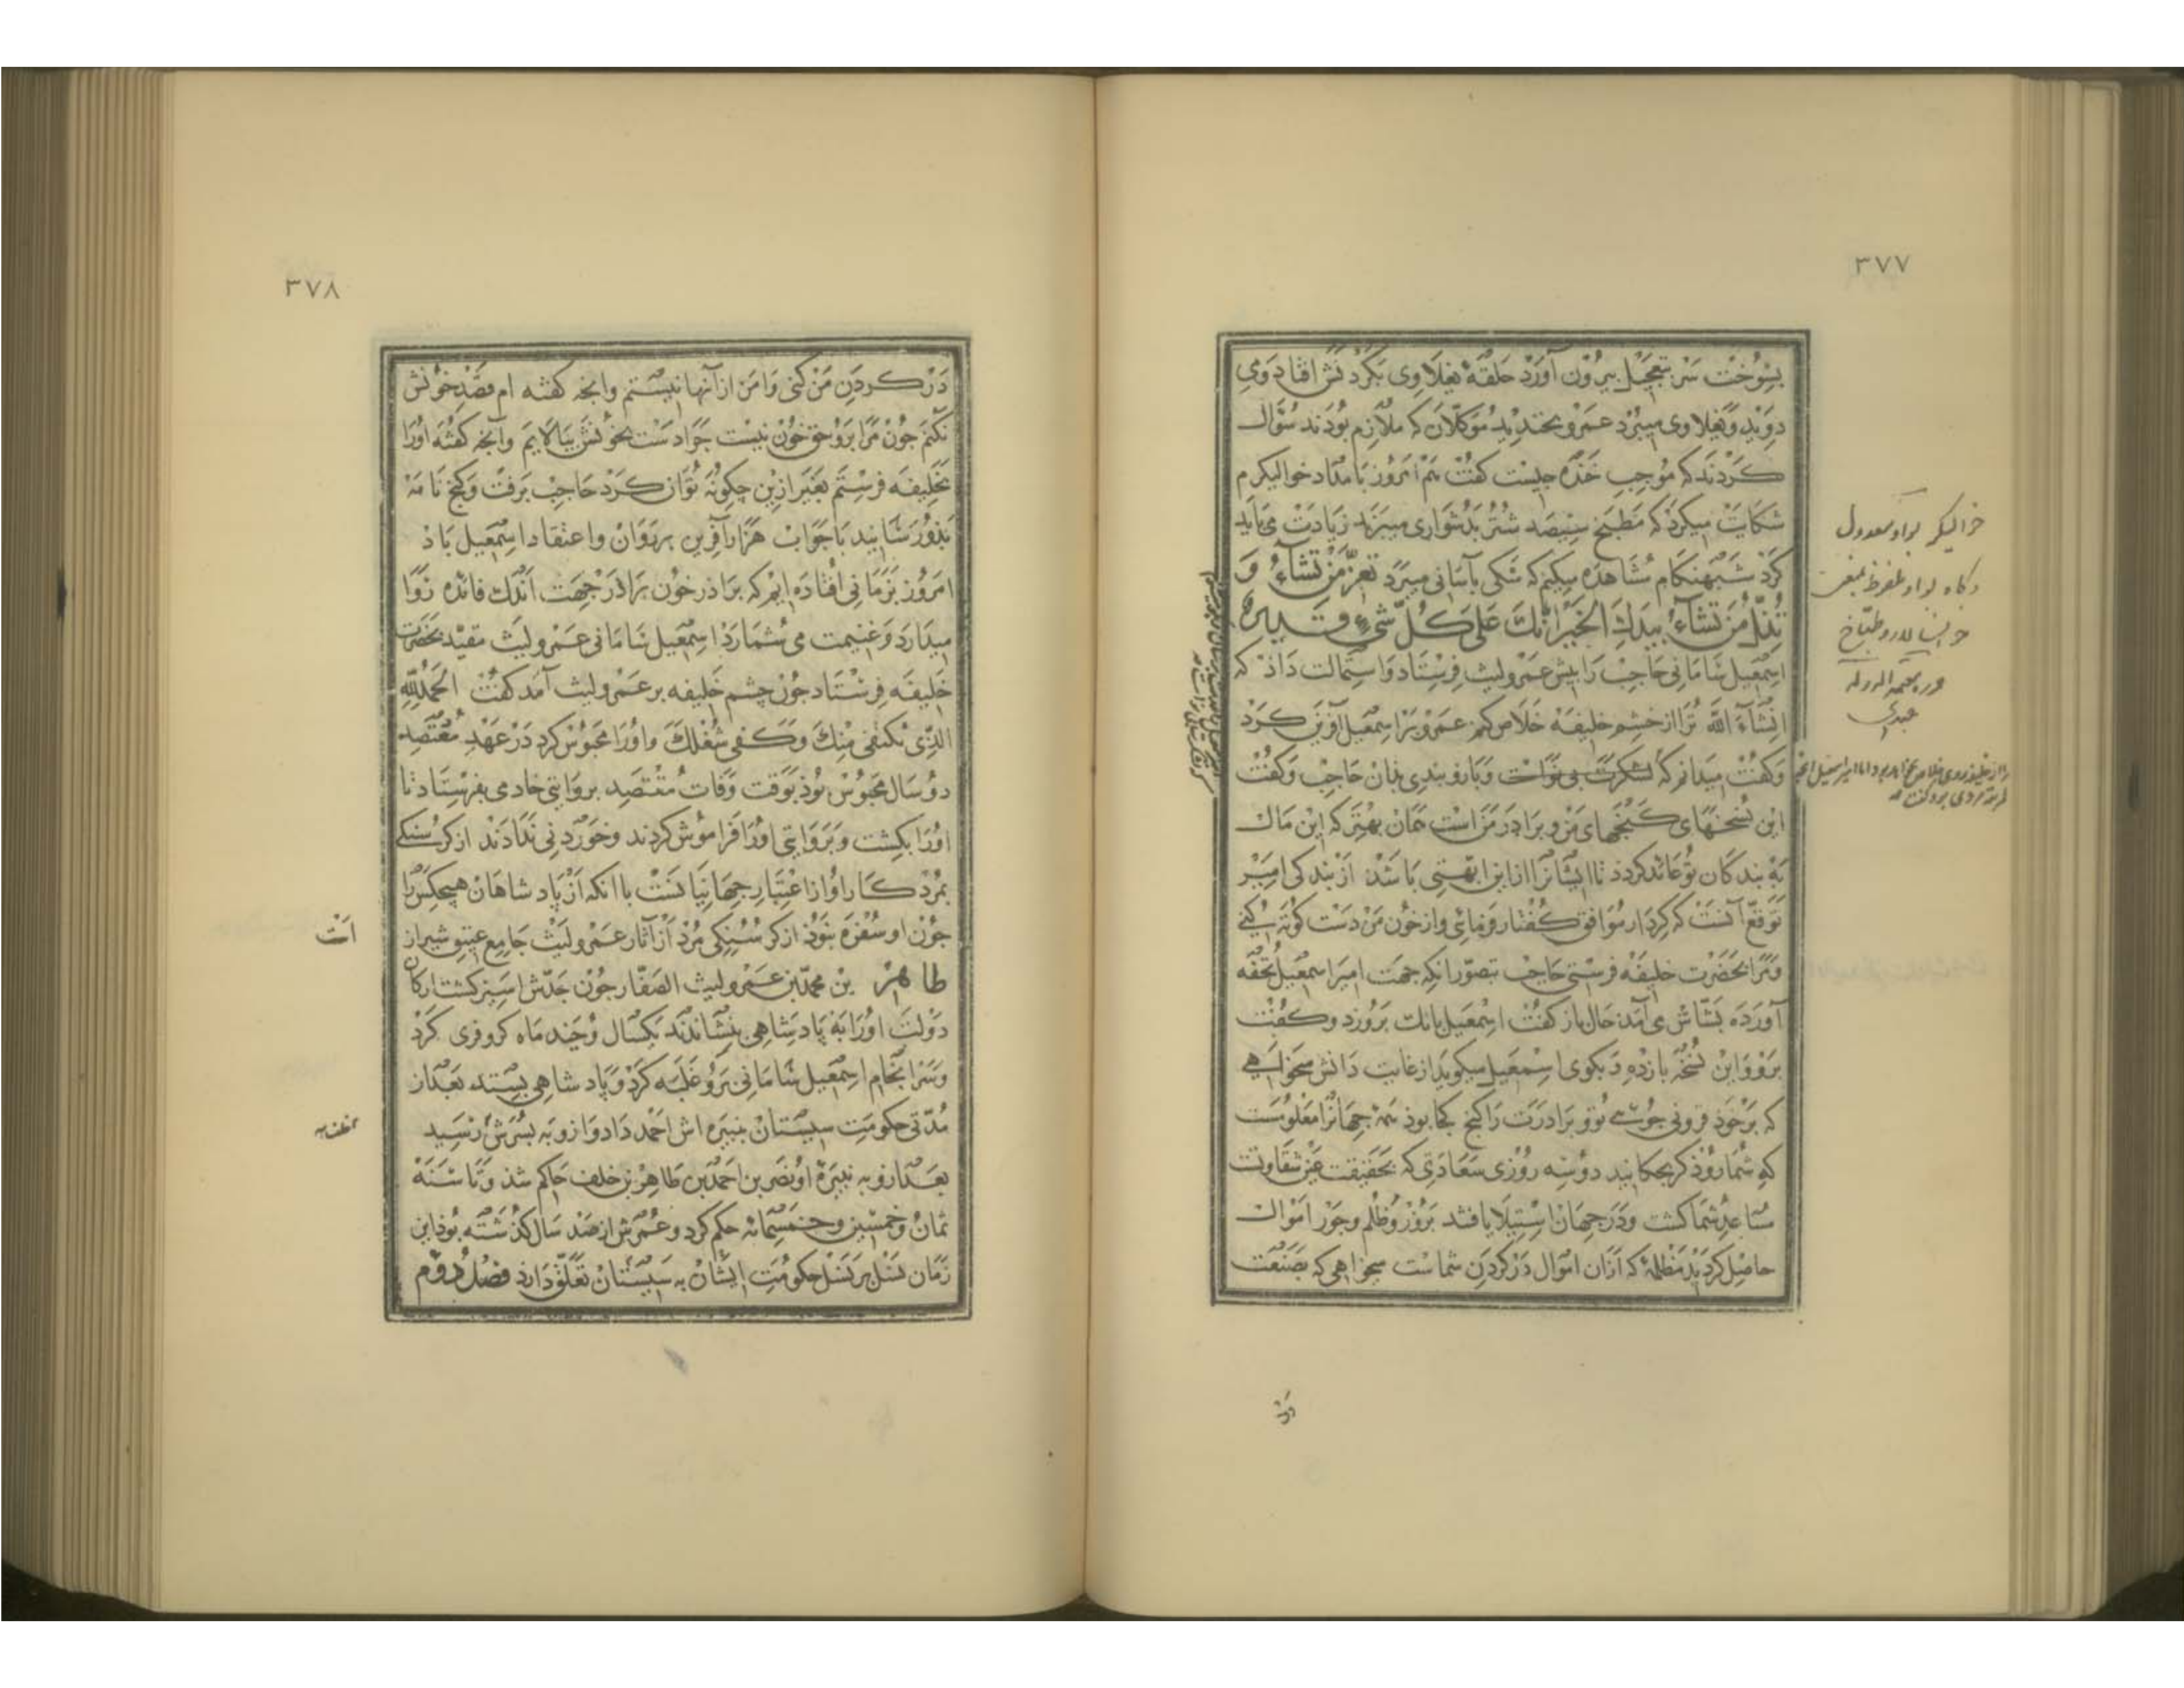 ٣٧٧
بسوخت سر بتعجیل بیرون آورد حلقهٔ بغلاوی بگردنش افتاد وی
دوید و بغلاوی میبرد عمرو بخندید موکلان که ملازم بودند سؤال
کردند که موجب خنده چیست گفت هم امروز بامداد خوالیکرم
شکایت میکرد که مطبخ سیصد شتر بدشواری میبرند زیادت می باید
کرد شبهنگام مشاهده میکنم که سکی بآسانی میبرد تعزّ من تشاء و
تذلّ من تشاء بیدك الخیر انّك علی کلّ شیء قدیر
اسمعیل سامانی حاجب را پیش عمرو لیث فرستاد و استمالت داد که
انشاء الله ترا از خشم خلیفه خلاص کنم عمرو بر اسمعیل آفرین کرد
وکفت میدانم که لشکرت بی نوااست وبازو بندی بدان حاجب وکفت
این نسخهای کنجهای من و برادر من است همان بهتر که این مال
به بندکان تو عائد کردد تا ایشانرا از این ابهتی باشد از بندکی امیر
توقع آنست که کردار موافق کفتار فرمائی واز خون من دست کوته کنی
ومرا بحضرت خلیفه فرستی حاجب بتصور انکه جهت امیر اسمعیل تحفه
آورده بشّاش می آمد حال باز کفت اسمعیل بانك بروزد وکفت
برو و این نسخه باز ده و بکوی اسمعیل میکوید از غایت دانش میخواهی
که بر خود فزونی جوئی تو و برادرت را کنج کجا بود همه جهانرا معلومست
که شما رو‌ذکر بچکانید دو سه روزی سعادتی که بحقیقت عین شقاوتست
مساعد شما کشت ودر جهان استیلا یافتید بزور وظلم وجور اموال
حاصل کردید مظلمهٔ که از آن اموال در کردن شماست میخواهی که بصنعت
در
خوالیکر بواو معدول
وکاه بواو ملفوظ بمعنی
خوانسالار و طبّاخ
٣٧٨
در کردن من کنی و من از آنها نیستم وانچه کفته ام قصد خونش
نکنم چون مرا برو حق خون نیست چرا دست بخونش بیالایم وانچه کفته اورا
بخلیفه فرستم بغیر ازین چکونه توان کرد حاجب برفت وکنج نامه
بذو رسانید با جواب هزار آفرین بر روان واعتقاد اسمعیل باذ
امروز بزمانی افتاده ایم که براذر خون براذر جهت اندك فائده روا
میدارد وغنیمت می شمارد اسمعیل سامانی عمرو لیث مقید بحضرت
خلیفه فرستاد چون چشم خلیفه بر عمرو لیث آمد کفت الحمد لله
الذی مکننی منك وکفی شغلك واورا محبوس کرد در عهد معتضد
دو سال محبوس بوذ بوقت وفات معتضد بروایتی خادمی بفرستاد تا
اورا بکشت وبروایتی اورا فراموش کردند وخوردنی ندادند از کرسنکی
بمرد کار او از اعتبار جهانیانست با انکه از پادشاهان هیچکس را
چون او سفره نبوذ از کرسنکی مرد از آثار عمرو لیث جامع عتیق شیراز است
طاهر بن محمد بن عمرو لیث الصفار چون جدش اسیر کشت ارکان
دولت اورا به پادشاهی بنشاندند یکسال وچند ماه کروفری کرد
وسرانجام اسمعیل سامانی برو غلبه کرد وپادشاهی بستد بعد از
مدتی حکومت سیستان بنبیره اش احمد داد واز و به پسرش رسید
بعد ازو به نبیره او نصر بن احمد بن طاهر بن خلف حاکم شد وتا سنه
ثمان وخمسین وخمسمائه حکم کرد وعمرش از صد سال کذشته بوذ این
زمان نسل بر نسل حکومت ایشان به سیستان تعلق دارد فصل دوم